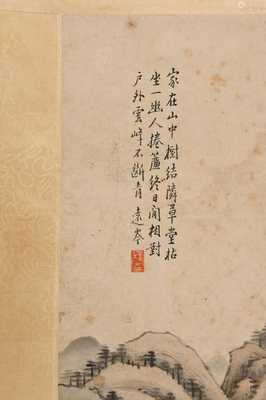 家在山中樹結隣草堂枯
坐一幽人捲簾終日閒相對
户外雲峰不斷青 遠岑